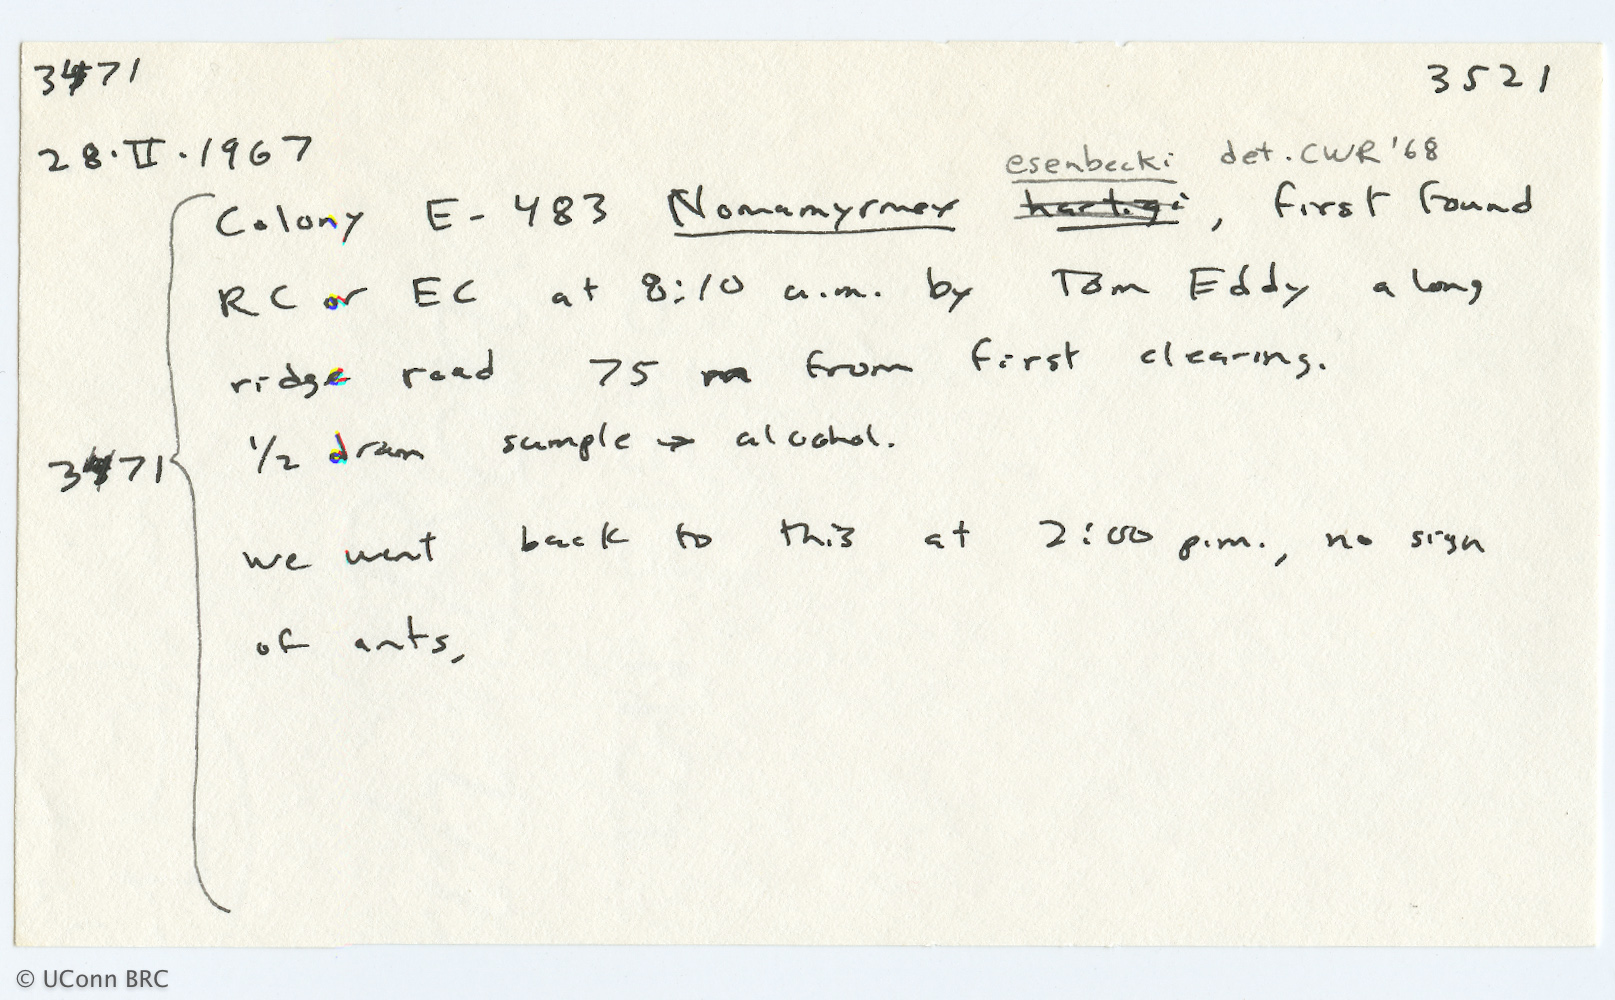 3471 3521
28·II·1967
esenbecki det. CWR '68
Colony E-483 Nomamyrmex hartigi, first found
RC or EC at 8:10 a.m. by Tom Eddy along
ridge road 75 m from first clearing.
1/2 dram sample → alcohol.
3471
we went back to this at 2:00 p.m., no sign
of ants,
© UConn BRC